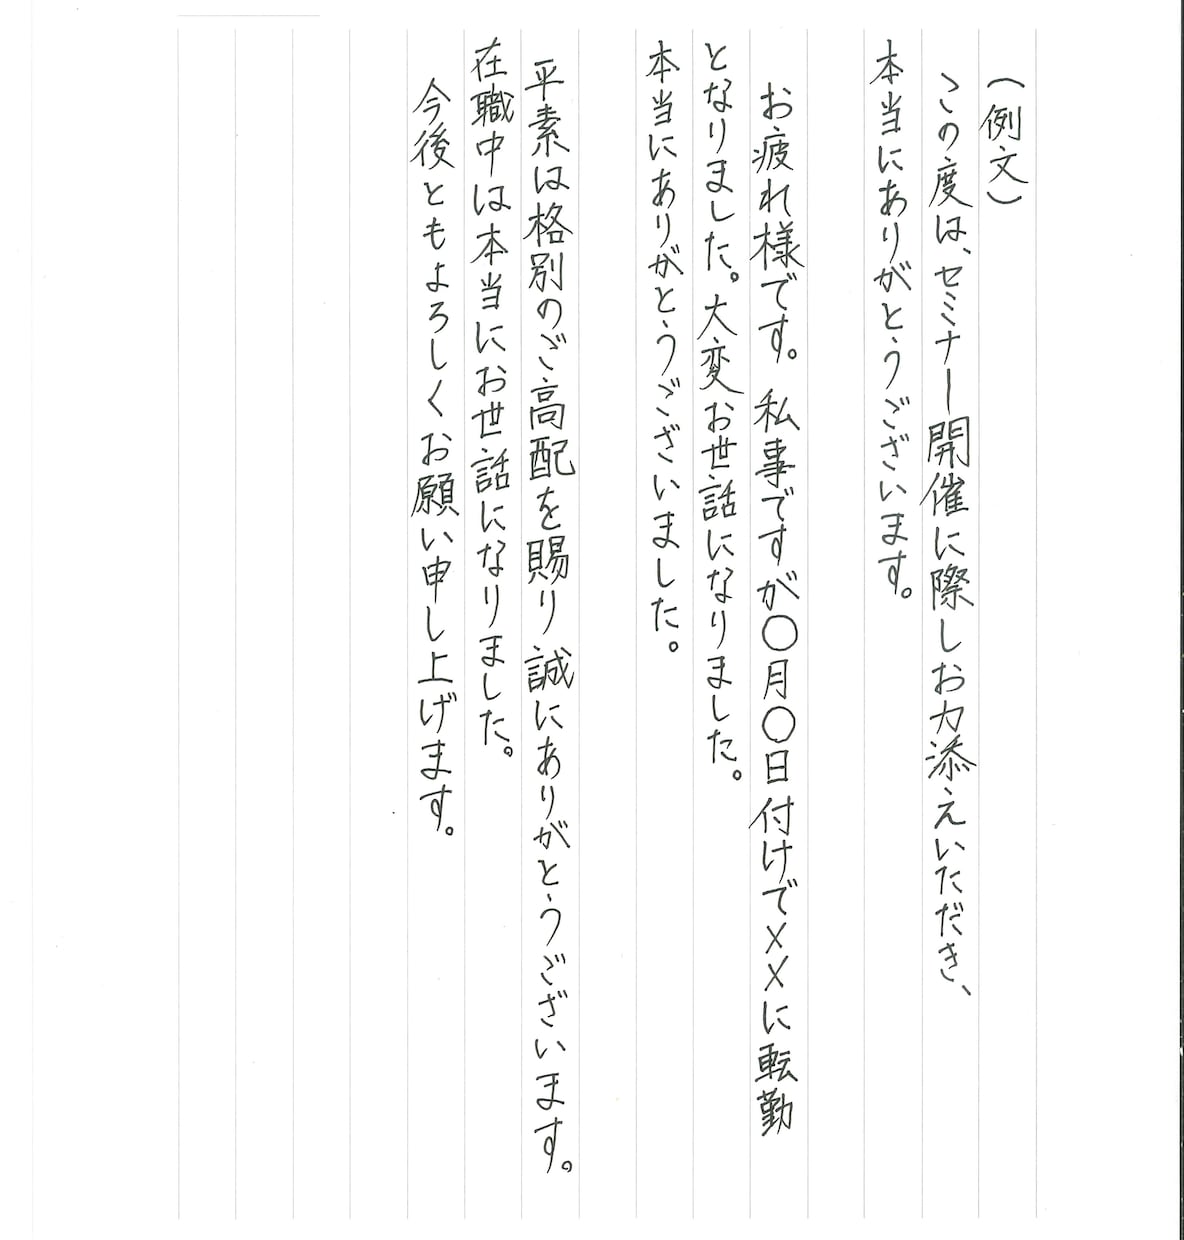 (例文)
この度は、セミナー開催に際しお力添えいただき、
本当にありがとうございます。
お疲れ様です。私事ですが〇月〇日付けで××に転勤
となりました。大変お世話になりました。
本当にありがとうございました。
平素は格別のご高配を賜り誠にありがとうございます。
在職中は本当にお世話になりました。
今後ともよろしくお願い申し上げます。